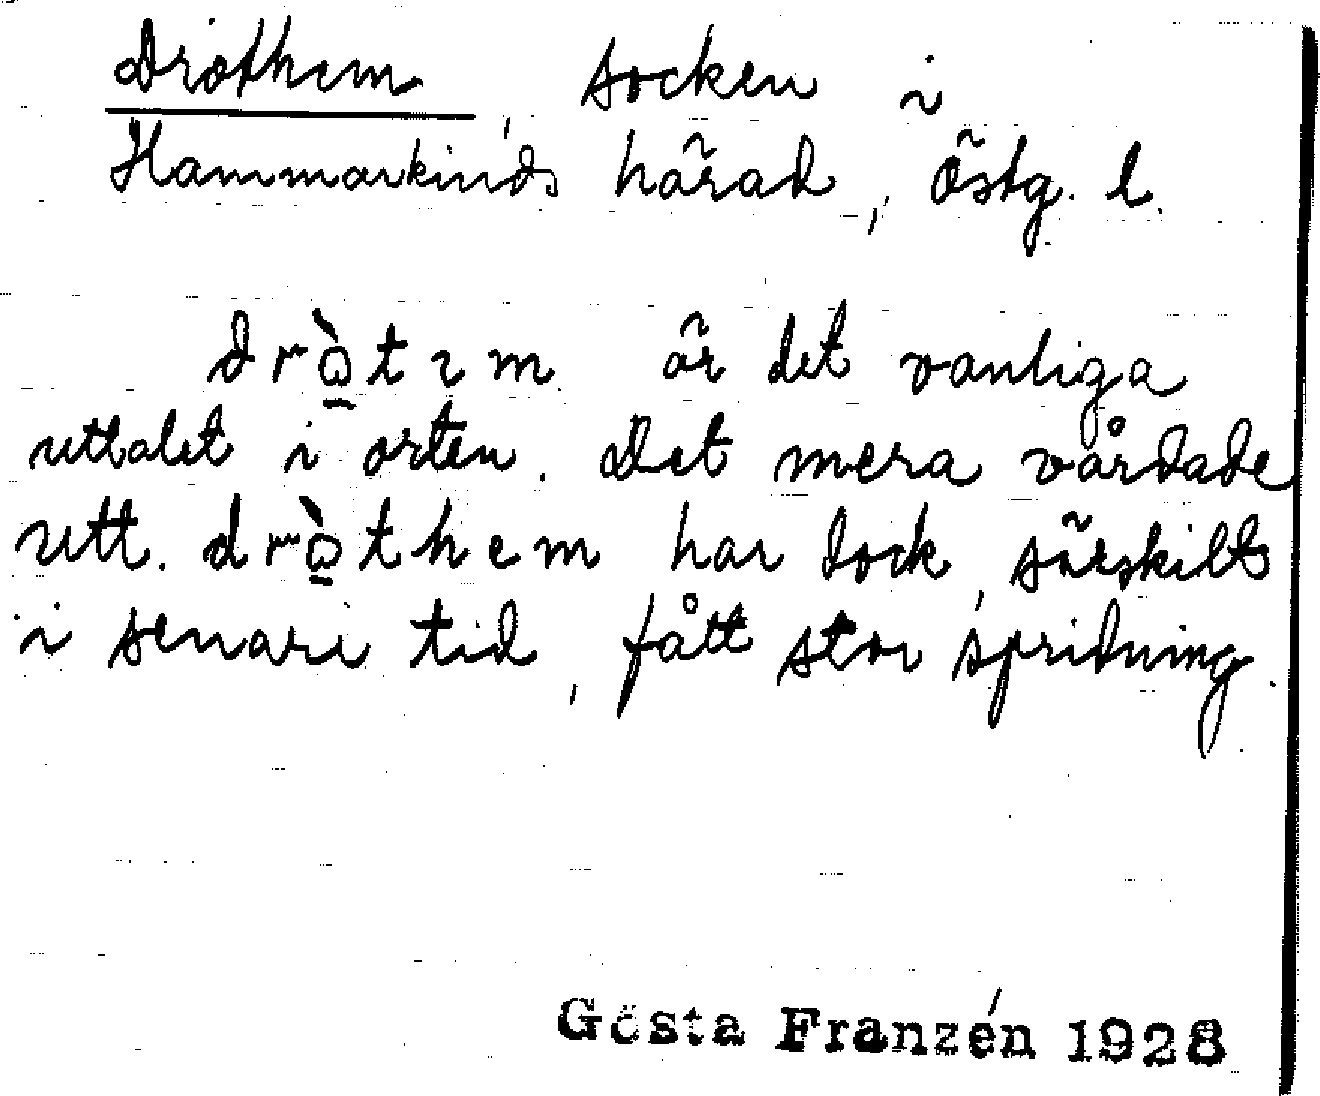 Drothem, socken i
Hammarkinds härad, Östg. l.
drὰ̱tım är det vanliga
uttalet i orten. Det mera vårdade
utt. drὰ̱them har dock, särskilt
i senare tid, fått stor spridning.
Gösta Franzén 1928